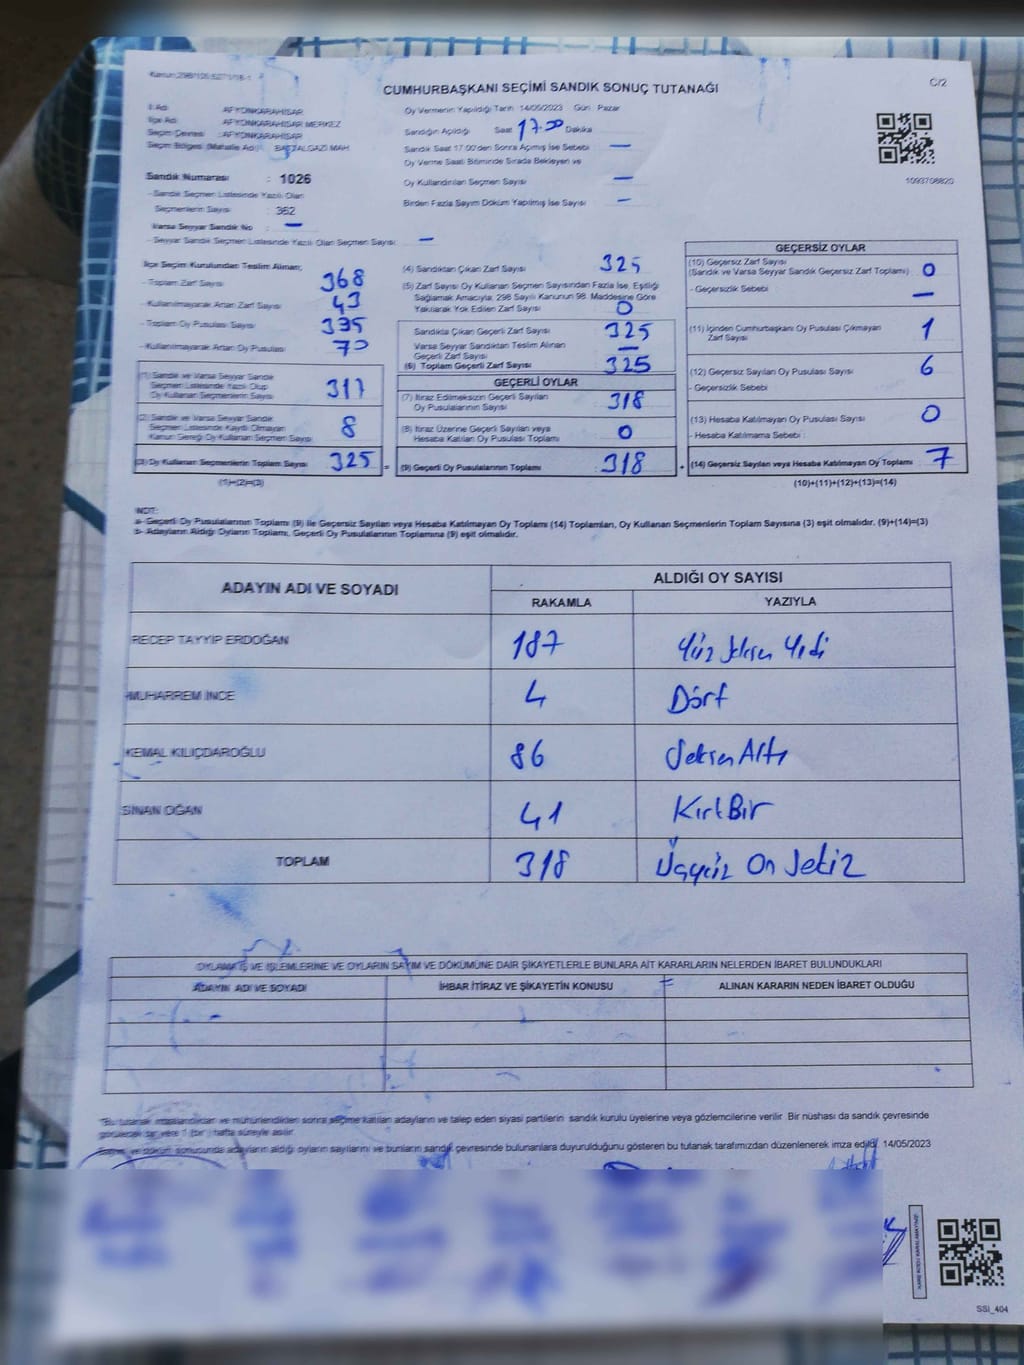 CUMHURBAŞKANI SEÇİMİ SANDIK SONUÇ TUTANAĞI
C/2
İl Adı : AFYONKARAHİSAR
İlçe Adı : AFYONKARAHİSAR MERKEZ
Seçim Çevresi : AFYONKARAHİSAR
Seçim Bölgesi (Mahalle Adı) : BATTALGAZİ MAH
Sandık Numarası : 1026
- Sandık Seçmen Listesinde Yazılı Olan
Seçmenlerin Sayısı : 362
Varsa Seyyar Sandık No —
- Seyyar Sandık Seçmen Listesinde Yazılı Olan Seçmen Sayısı : —
Oy Vermenin Yapıldığı Tarih 14/05/2023 Gün : Pazar
Sandığın Açıldığı Saat 17.00 Dakika
Sandık Saat 17.00'den Sonra Açılmış İse Sebebi —
Oy Verme Saati Bitiminde Sırada Bekleyen ve
Oy Kullandırılan Seçmen Sayısı —
Birden Fazla Sayım Döküm Yapılmış İse Sayısı —
1093708820
İlçe Seçim Kurulundan Teslim Alınan;
- Toplam Zarf Sayısı 368
- Kullanılmayarak Artan Zarf Sayısı 43
- Toplam Oy Pusulası Sayısı 395
- Kullanılmayarak Artan Oy Pusulası 70
(1) Sandık ve Varsa Seyyar Sandık
Seçmen Listesinde Yazılı Olup
Oy Kullanan Seçmenlerin Sayısı 317
(2) Sandık ve Varsa Seyyar Sandık
Seçmen Listesinde Kayıtlı Olmayan
Kanun Gereği Oy Kullanan Seçmen Sayısı 8
(3) Oy Kullanan Seçmenlerin Toplam Sayısı 325 =
(1)+(2)=(3)
(4) Sandıktan Çıkan Zarf Sayısı 325
(5) Zarf Sayısı Oy Kullanan Seçmen Sayısından Fazla İse, Eşitliği
Sağlamak Amacıyla; 298 Sayılı Kanunun 98. Maddesine Göre
Yakılarak Yok Edilen Zarf Sayısı 0
Sandıkta Çıkan Geçerli Zarf Sayısı 325
Varsa Seyyar Sandıktan Teslim Alınan
Geçerli Zarf Sayısı —
(6) Toplam Geçerli Zarf Sayısı 325
GEÇERLİ OYLAR
(7) İtiraz Edilmeksizin Geçerli Sayılan
Oy Pusulalarının Sayısı 318
(8) İtiraz Üzerine Geçerli Sayılan veya
Hesaba Katılan Oy Pusulası Toplamı 0
(9) Geçerli Oy Pusulalarının Toplamı 318 +
GEÇERSİZ OYLAR
(10) Geçersiz Zarf Sayısı
(Sandık ve Varsa Seyyar Sandık Geçersiz Zarf Toplamı) 0
- Geçersizlik Sebebi : —
(11) İçinden Cumhurbaşkanı Oy Pusulası Çıkmayan
Zarf Sayısı 1
(12) Geçersiz Sayılan Oy Pusulası Sayısı 6
- Geçersizlik Sebebi :
(13) Hesaba Katılmayan Oy Pusulası Sayısı 0
- Hesaba Katılmama Sebebi :
(14) Geçersiz Sayılan veya Hesaba Katılmayan Oy Toplamı 7
(10)+(11)+(12)+(13)=(14)
NOT:
a- Geçerli Oy Pusulalarının Toplamı (9) ile Geçersiz Sayılan veya Hesaba Katılmayan Oy Toplamı (14) Toplamları, Oy Kullanan Seçmenlerin Toplam Sayısına (3) eşit olmalıdır. (9)+(14)=(3)
b- Adayların Aldığı Oyların Toplamı, Geçerli Oy Pusulalarının Toplamına (9) eşit olmalıdır.
ADAYIN ADI VE SOYADI
ALDIĞI OY SAYISI
RAKAMLA YAZIYLA
RECEP TAYYİP ERDOĞAN 187 Yüz Seksen Yedi
MUHARREM İNCE 4 Dört
KEMAL KILIÇDAROĞLU 86 Seksen Altı
SİNAN OĞAN 41 Kırk Bir
TOPLAM 318 Üçyüz On Sekiz
OYLAMA İŞ VE İŞLEMLERİNE VE OYLARIN SAYIM VE DÖKÜMÜNE DAİR ŞİKAYETLERLE BUNLARA AİT KARARLARIN NELERDEN İBARET BULUNDUKLARI
ADAYIN ADI VE SOYADI İHBAR İTİRAZ VE ŞİKAYETİN KONUSU ALINAN KARARIN NEDEN İBARET OLDUĞU
"Bu tutanak imzalandıktan ve mühürlendikten sonra seçime katılan adayların ve talep eden siyasi partilerin sandık kurulu üyelerine veya gözlemcilerine verilir. Bir nüshası da sandık çevresinde
görülecek bir yere 1 (bir) hafta süreyle asılır.
Sayım ve döküm sonucunda adayların aldığı oyların sayılarını ve bunların sandık çevresinde bulunanlara duyurulduğunu gösteren bu tutanak tarafımızdan düzenlenerek imza edildi. 14/05/2023
SSİ_404